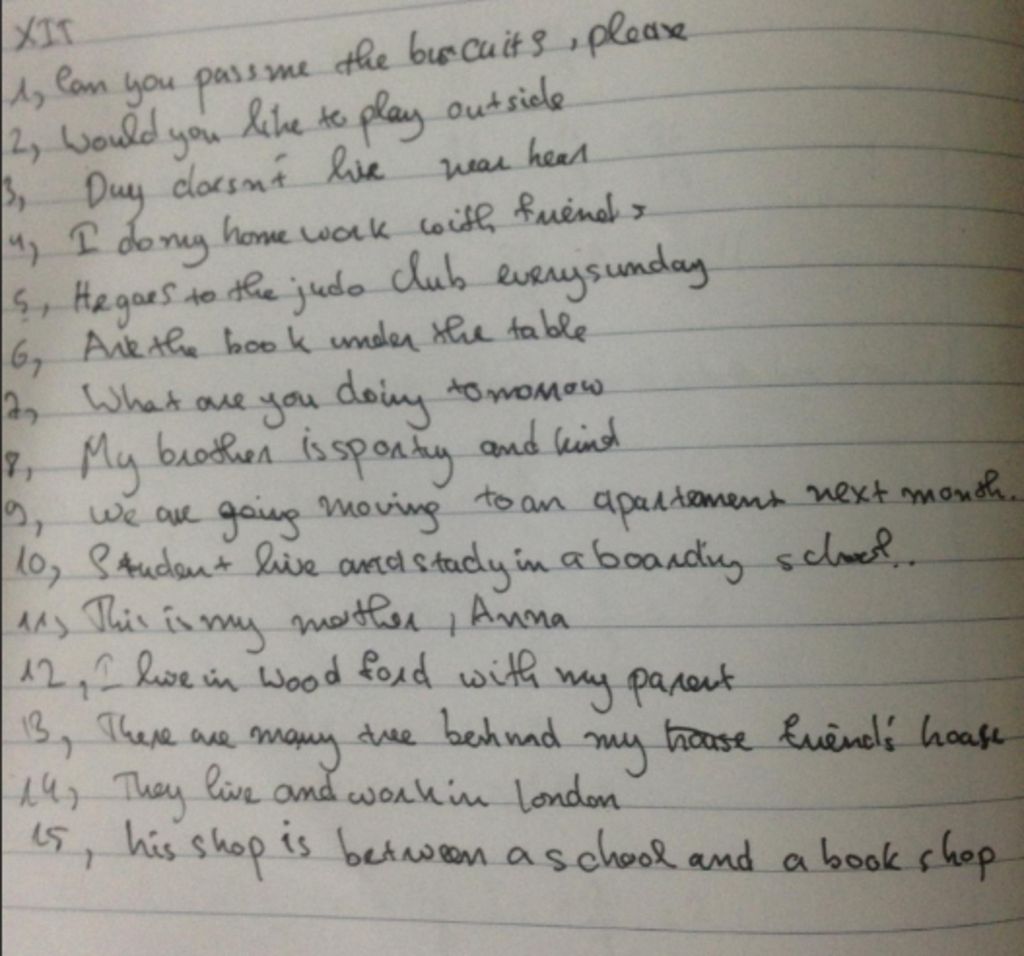 XII
1, Can you pass me the buscuits, please
2, Would you like to play outside
3, Duy doesn't live near hear
4, I do my home work with friends
5, He goes to the judo club every sunday
6, Are the book under the table
7, What are you doing tomorrow
8, My brother is sporty and kind
9, We are going moving to an apartement next month.
10, Student live and study in a boarding school..
11, This is my mother, Anna
12, I live in Wood ford with my parent
13, There are many tree behind my house friend's house
14, They live and work in london
15, his shop is between a school and a book shop